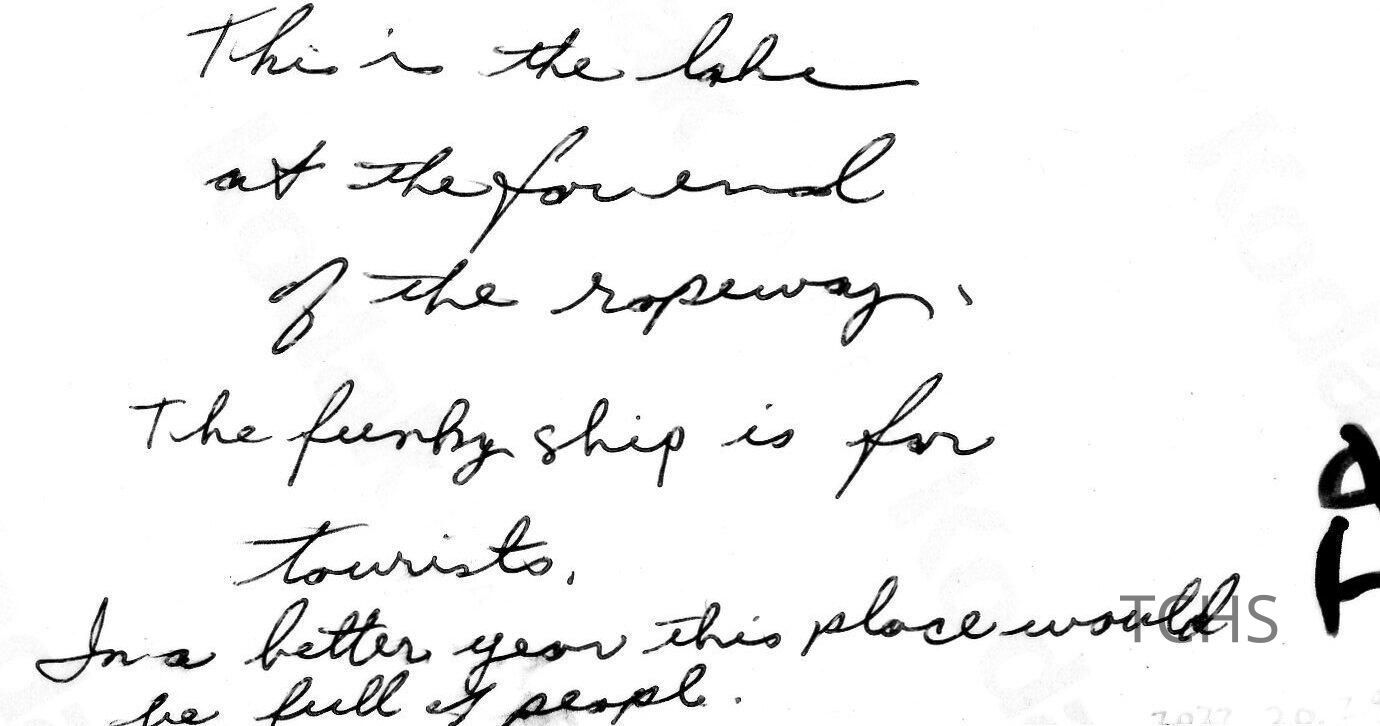 This is the lake
at the far end
of the ropeway.
The funky ship is for
tourists.
In a better year this place would
TCHS
be full of people.